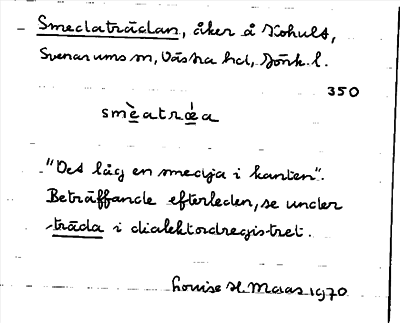 Smedaträdan, åker å Kohult,
Svenarums sn, Västra hd, Jönk. l.
350
smèatrǽa
"Det låg en smedja i kanten".
Beträffande efterleden, se under
träda i dialektordregistret.
Louise H. Maas 1970